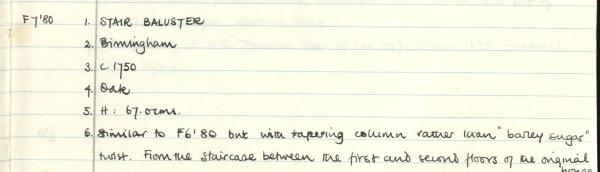 F7'80 1. STAIR BALUSTER
2. Birmingham
3. C. 1750
4. Oak
5. H: 67.0cms.
6. Similar to F6'80 but with tapering column rather than "barley sugar"
twist. From the staircase between the first and second floors of the original